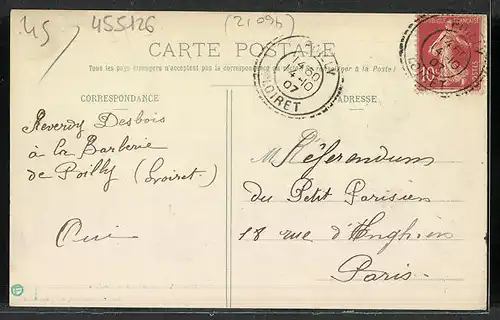 45 455126 (2109b)
CARTE POSTALE
Tous les pays étrangers n'acceptent pas la correspondance au à la Poste)
CORRESPONDANCE
ADRESSE
4 50
4-10
07
LOIRET
10
Reverdy Desbois
à la Barberie
de Poilly (Loiret.)
Oui
M Référendum
du Petit Parisien
18 rue d'Enghien
Paris.